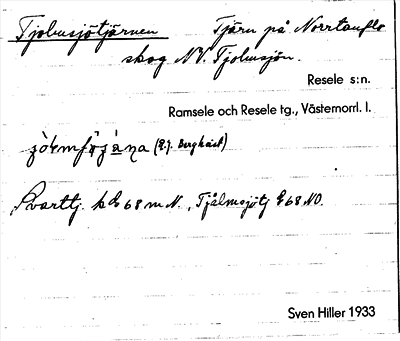 Tjolmsjötjärnen Tjärn på Norrtanflo
skog NV. Tjolmsjön.
Resele s:n.
Ramsele och Resele tg., Västernorrl. l.
(E.J. Berghäst)
Svarttj. 68 m N., Tjälmsjötj 68 NO.
Sven Hiller 1933